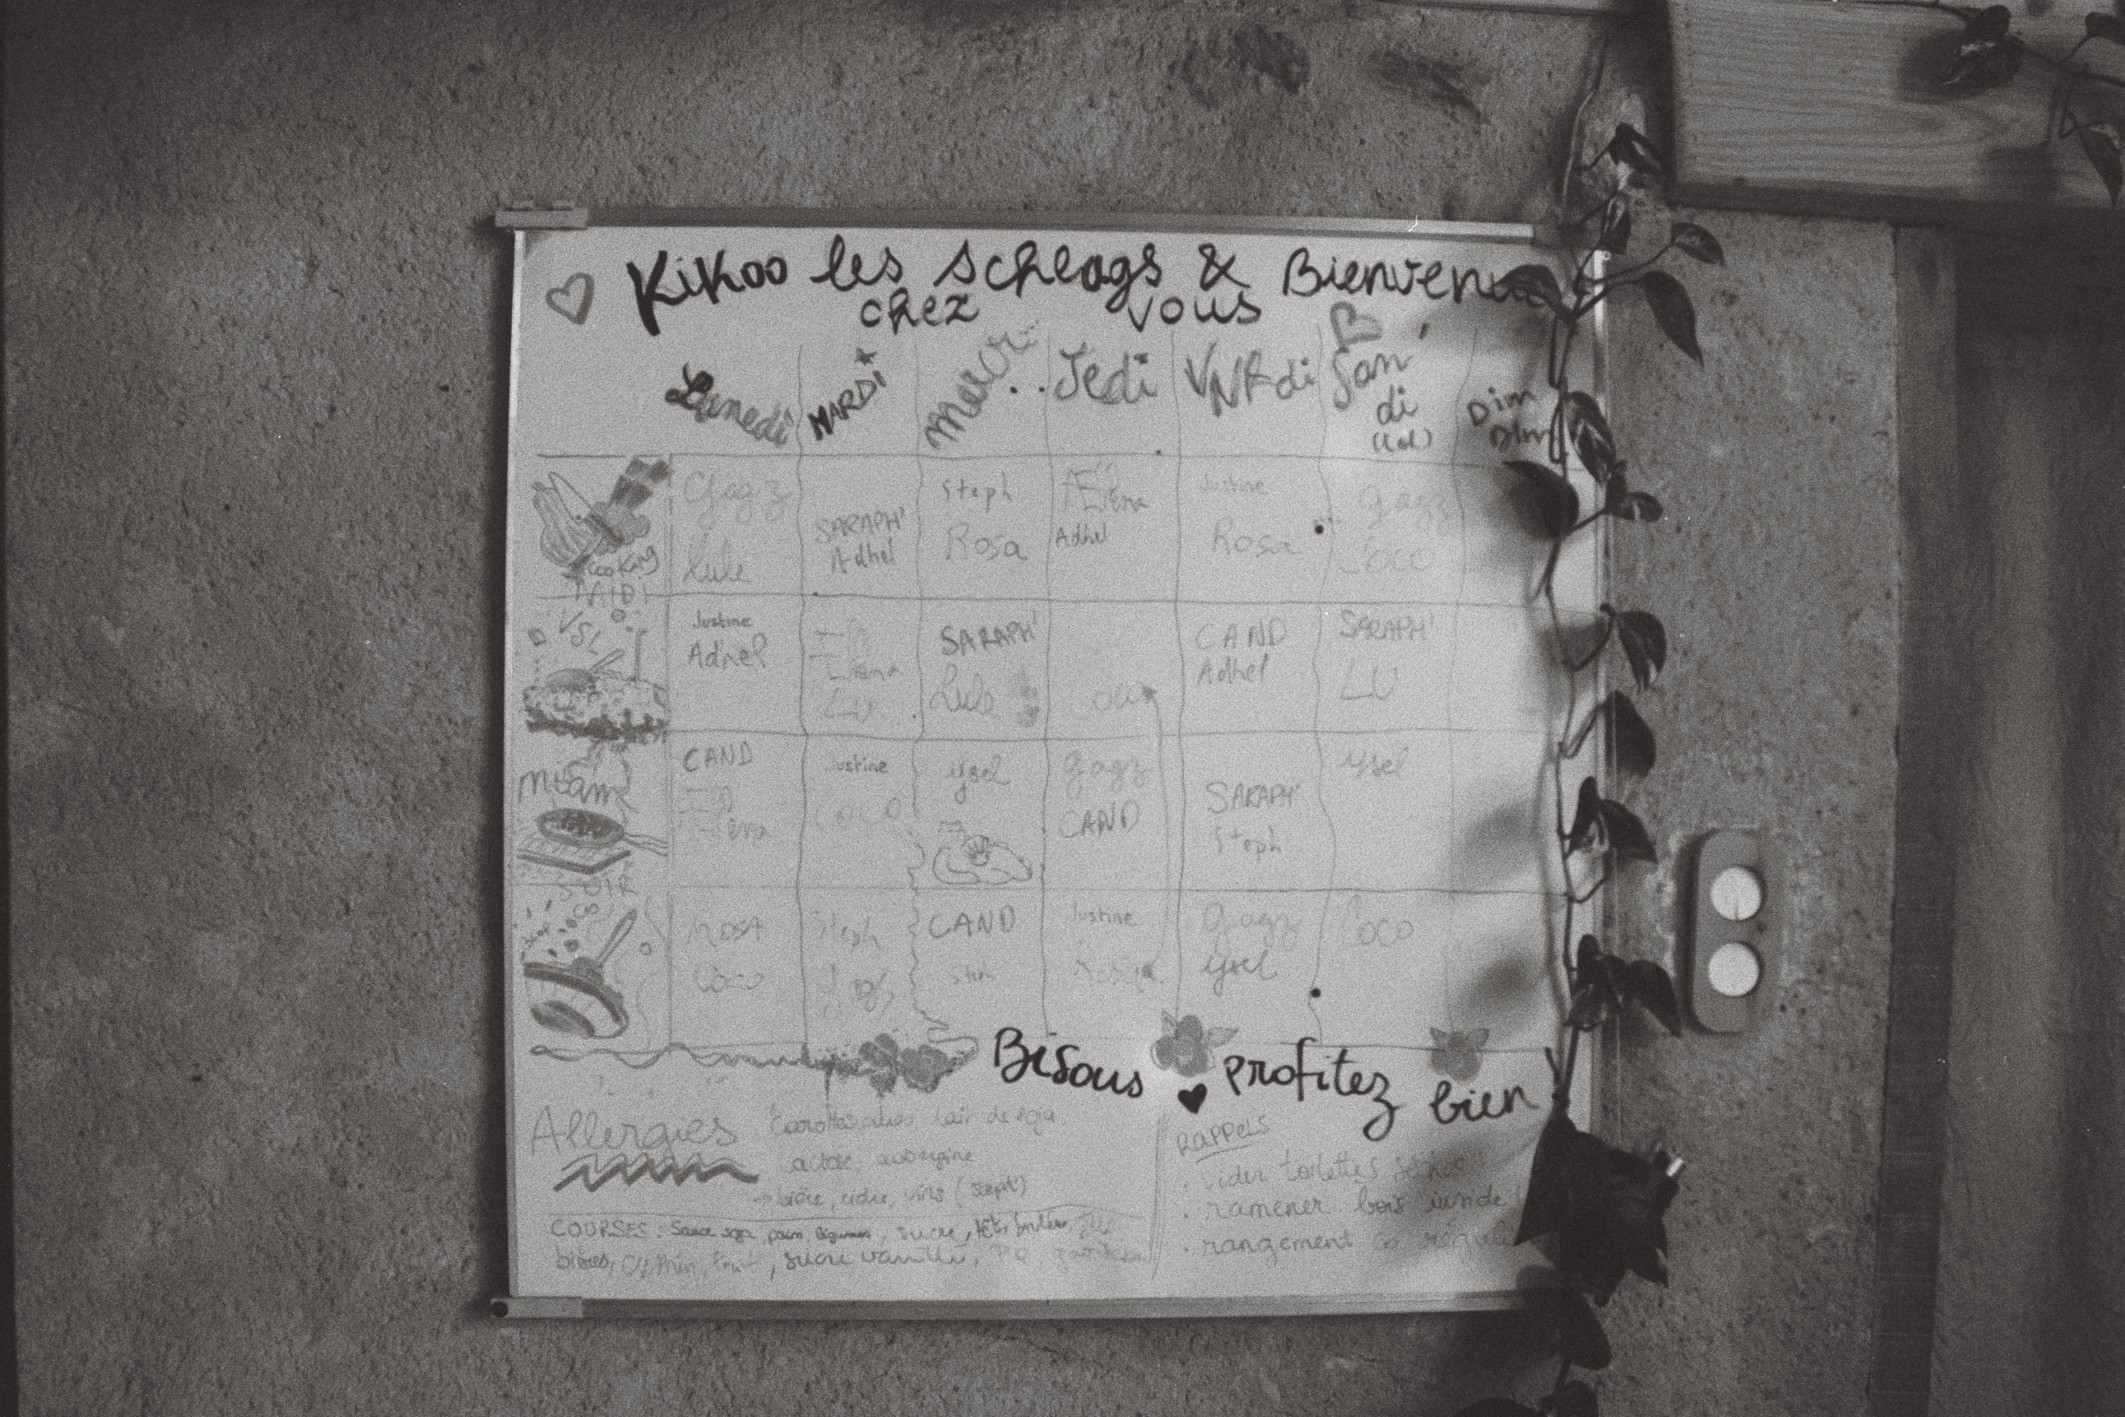 Kikoo les schlags & Bienvenue
chez vous
Lunedi MARDI mercr... Jedi VNRdi Sam'
di
(lol)
Dim
Dim
Gagz SARAPH' Steph Elena Justine Gagz
Lule Adhel Rosa Adhel Rosa Coco
cooking
MIDI
VSL
Justine Elena SARAPH' CAND SARAPH'
Adhel LU Lule Adhel LU
Miam
CAND Justine ysel gagz SARAPH' ysel
Elena Coco CAND Steph
SOIR
ROSA Steph CAND Justine Gagz Coco
Coco ysel
Bisous ♥ profitez bien
Allergies Carottes lait de soja
lactose, aubergine
→ bière, cidre, vins
RAPPELS
. vider toilettes sèches
. ramener bois
. rangement
COURSES : Sauce soja, pain, légumes, sucre,
bières, sucre vanillé,